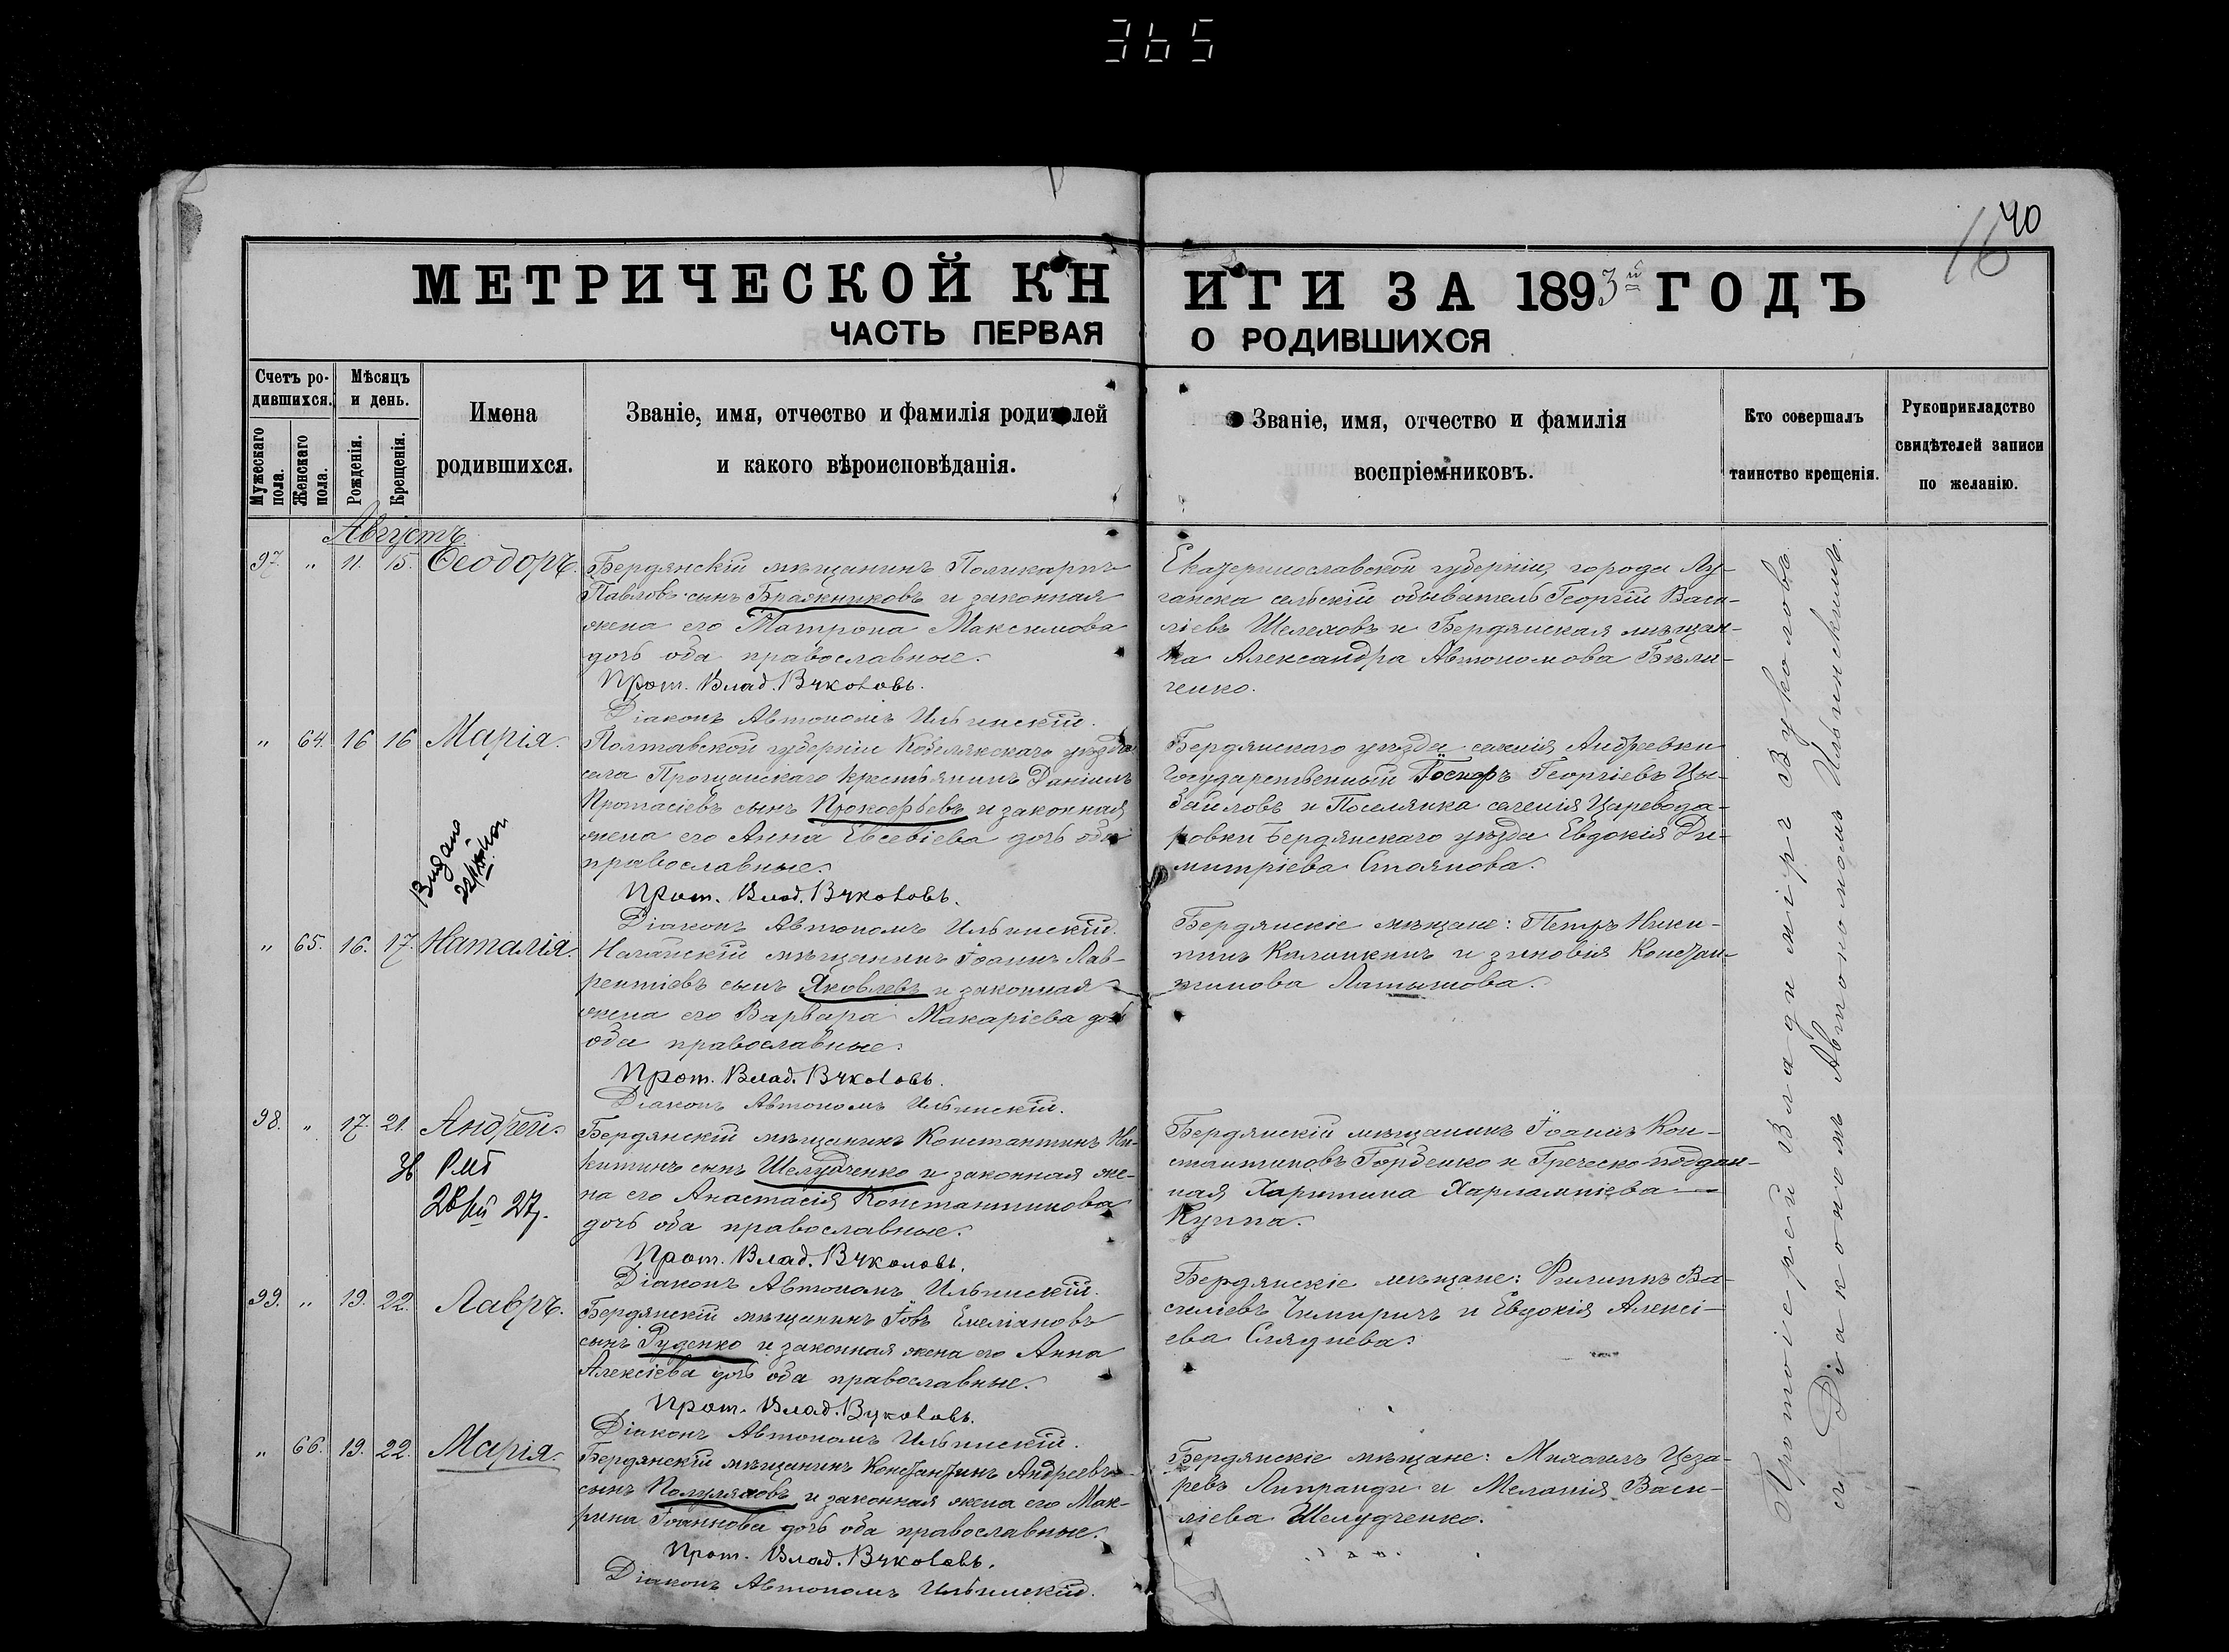 365
40
16
МЕТРИЧЕСКОЙ КНИГИ ЗА 1893й ГОДЪ
ЧАСТЬ ПЕРВАЯ О РОДИВШИХСЯ
Счетъ ро-
дившихся.
Мужескаго
пола.
Женскаго
пола.
Мѣсяцъ
и день.
Рожденія.
Крещенія.
Имена
родившихся.
Званіе, имя, отчество и фамилія родителей
и какого вѣроисповѣданія.
Званіе, имя, отчество и фамилія
воспріемниковъ.
Кто совершалъ
таинство крещенія.
Рукоприкладство
свидѣтелей записи
по желанію.
Августъ
97. " 11. 15. Ѳеодоръ.
Бердянскій мѣщанинъ Поликарпъ
Павловъ сынъ Бражниковъ и законная
жена его Матрона Максимова
дочь оба православные.
Прот. Влад. Вуколовъ.
Діаконъ Автономъ Ильинскій.
Екатеринославской губерніи города Лу-
ганска сельскій обыватель Георгій Васи-
ліевъ Шелеховъ и Бердянская мѣщан-
ка Александра Автономова Бѣли-
ченко.
" 64. 16 16 Марія.
Полтавской губерніи Кобелякскаго уѣзда
села Прощанскаго крестьянинъ Даніилъ
Протасіевъ сынъ Прокофьевъ и законная
жена его Анна Евсевіева дочь оба
православные.
Прот. Влад. Вуколовъ.
Діаконъ Автономъ Ильинскій.
Бердянскаго уѣзда селенія Андреевки
Государственный Георгіевъ
и Поселянка селенія Царевода-
ровки Бердянскаго уѣзда Евдокія Ди-
митріева Стоянова.
Видано
" 65. 16. 17. Наталія.
Ногайскій мѣщанинъ Іоаннъ Лав-
рентіевъ сынъ Яковлевъ и законная
жена его Варвара Макаріева дочь
оба православные.
Прот. Влад. Вуколовъ.
Діаконъ Автономъ Ильинскій.
Бердянскіе мѣщане: Петръ Ники-
тинъ Калинкинъ и Зиновія Констан-
тинова Латышова.
98. " 17. 21. Андрей.
Бердянскій мѣщанинъ Константинъ Ни-
китинъ сынъ Шелудченко и законная же-
на его Анастасія Константинова
дочь оба православные.
Прот. Влад. Вуколовъ.
Діаконъ Автономъ Ильинскій.
Бердянскій мѣщанинъ Іоаннъ Кон-
стантиновъ Горбенко и Греческо-поддан-
ная Харитина Харлампіева
Куппа.
99. " 19. 22. Лавръ.
Бердянскій мѣщанинъ Іовъ Емеліановъ
сынъ Руденко и законная жена его Анна
Алексіева дочь оба православные.
Прот. Влад. Вуколовъ.
Діаконъ Автономъ Ильинскій.
Бердянскіе мѣщане: Филиппъ Ва-
силіевъ Чимиричъ и Евдокія Алексі-
ева Сляднева.
" 66. 19. 22. Марія.
Бердянскій мѣщанинъ Константинъ Андреевъ
сынъ Полуляховъ и законная жена его Мак-
рина Іоаннова дочь оба православные.
Прот. Влад. Вуколовъ.
Діаконъ Автономъ Ильинскій.
Бердянскіе мѣщане: Михаилъ Цеза-
ревъ Липранди и Меланія Васи-
ліева Шелудченко.
Протоіерей Владиміръ Вуколовъ
съ Діакономъ Автономомъ Ильинскимъ.